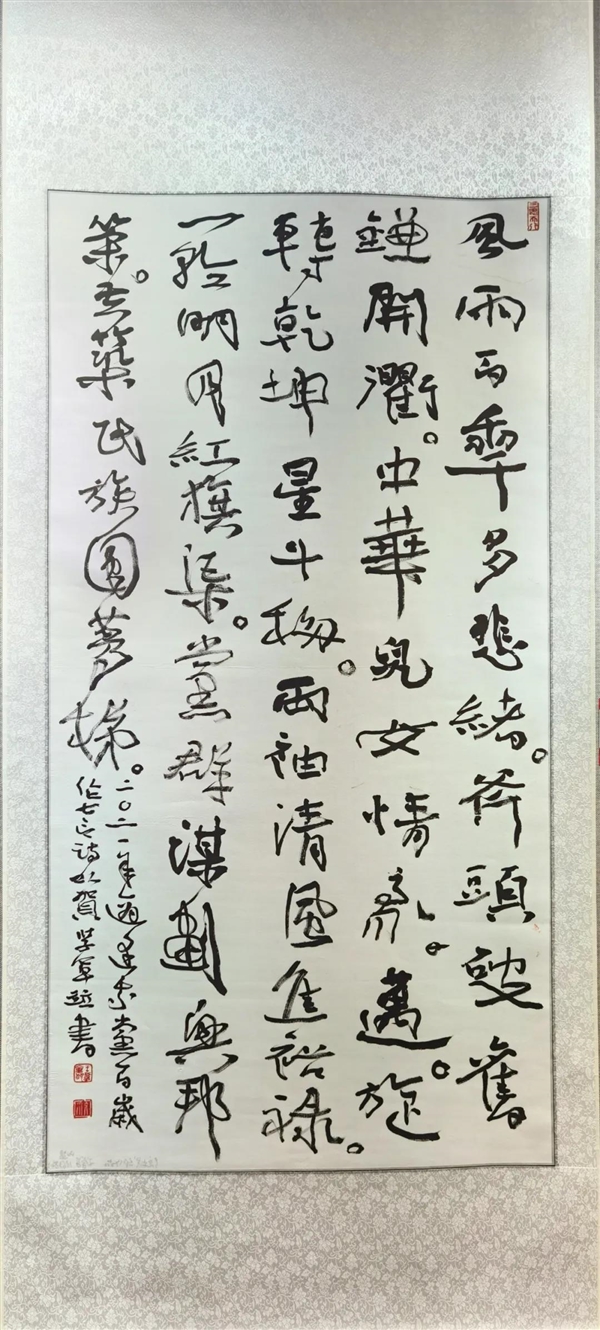 風雨百年多悲緒。斧頭鐮舊
鐮開衢。中華兒女情豪邁。旋
轉乾坤星斗移。兩袖清風進裕祿。
一輪明月紅旗渠。黨群謀劃興邦
策。共築民族圓夢梯。
二〇二一年適逢家黨百歲
作七言詩以賀 學軍 書